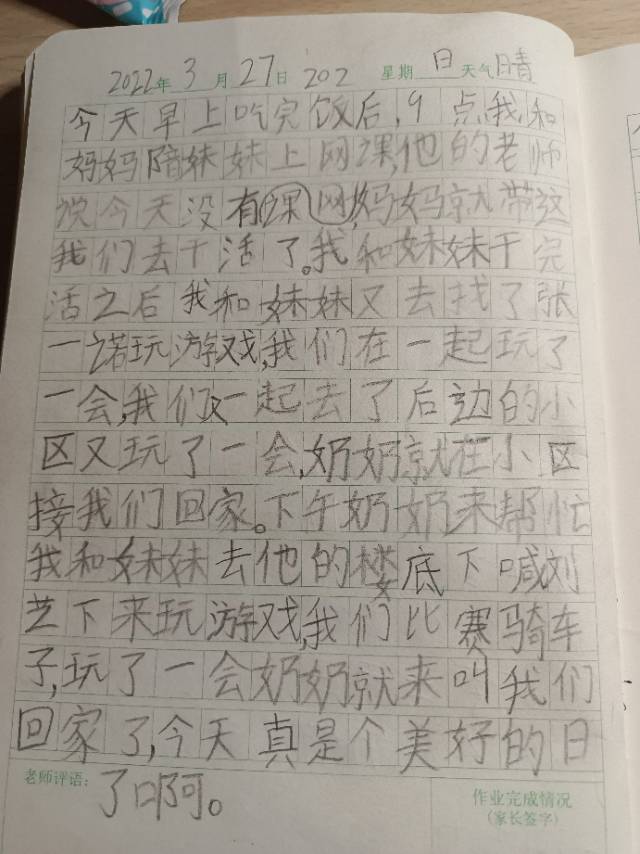 2022年3月27日 202 星期日天气晴
今天早上吃完饭后,9点,我和
妈妈陪妹妹上网课,他的老师
说今天没有课网,妈妈就带这
我们去干活了。我和妹妹干完
活之后我和妹妹又去找了张
一诺玩游戏,我们在一起玩了
一会,我们又一起去了后边的小
区又玩了一会,奶奶就在小区
接我们回家。下午奶奶来帮忙
我和妹妹去他的楼底下喊刘
芝下来玩游戏,我们比赛骑车
子,玩了一会奶奶就来叫我们
回家了,今天真是个美好的日
老师评语:
了啊。
作业完成情况
(家长签字)